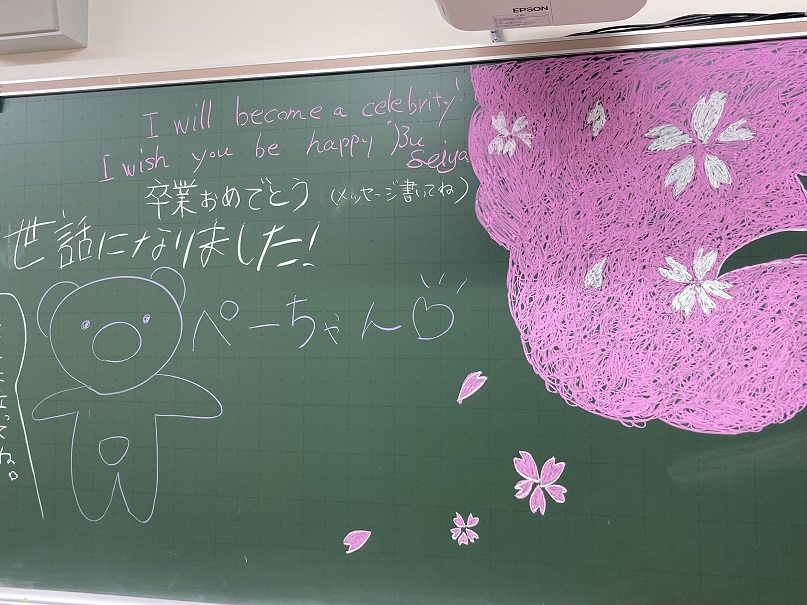 EPSON
I will become a celebrity!
I wish you be happy
By Seiya
卒業おめでとう (メッセージ書いてね)
世話になりました!
ぺーちゃん
ってね。